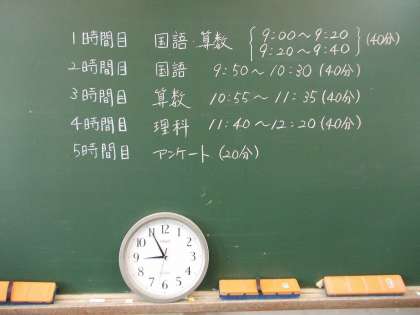 1時間目 国語・算数 {9:00〜9:20
9:20〜9:40} (40分)
2時間目 国語 9:50〜10:30 (40分)
3時間目 算数 10:55〜11:35 (40分)
4時間目 理科 11:40〜12:20 (40分)
5時間目 アンケート (20分)
12
1
2
3
4
5
6
7
8
9
10
11